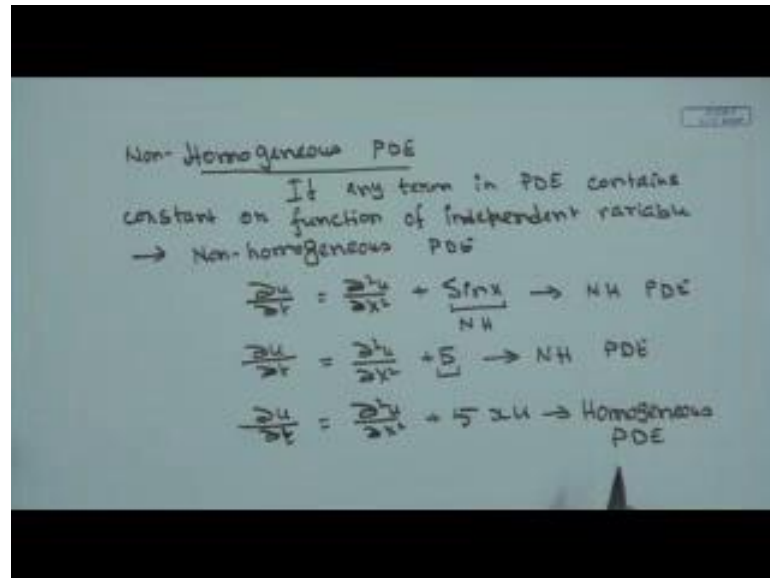 Non-Homogeneous PDE
If any term in PDE contains
constant or function of independent variable
→ Non-homogeneous PDE
∂u/∂t = ∂²u/∂x² + Sinx → NH PDE
NH
∂u/∂t = ∂²u/∂x² + 5 → NH PDE
∂u/∂t = ∂²u/∂x² + 5xu → Homogeneous
PDE